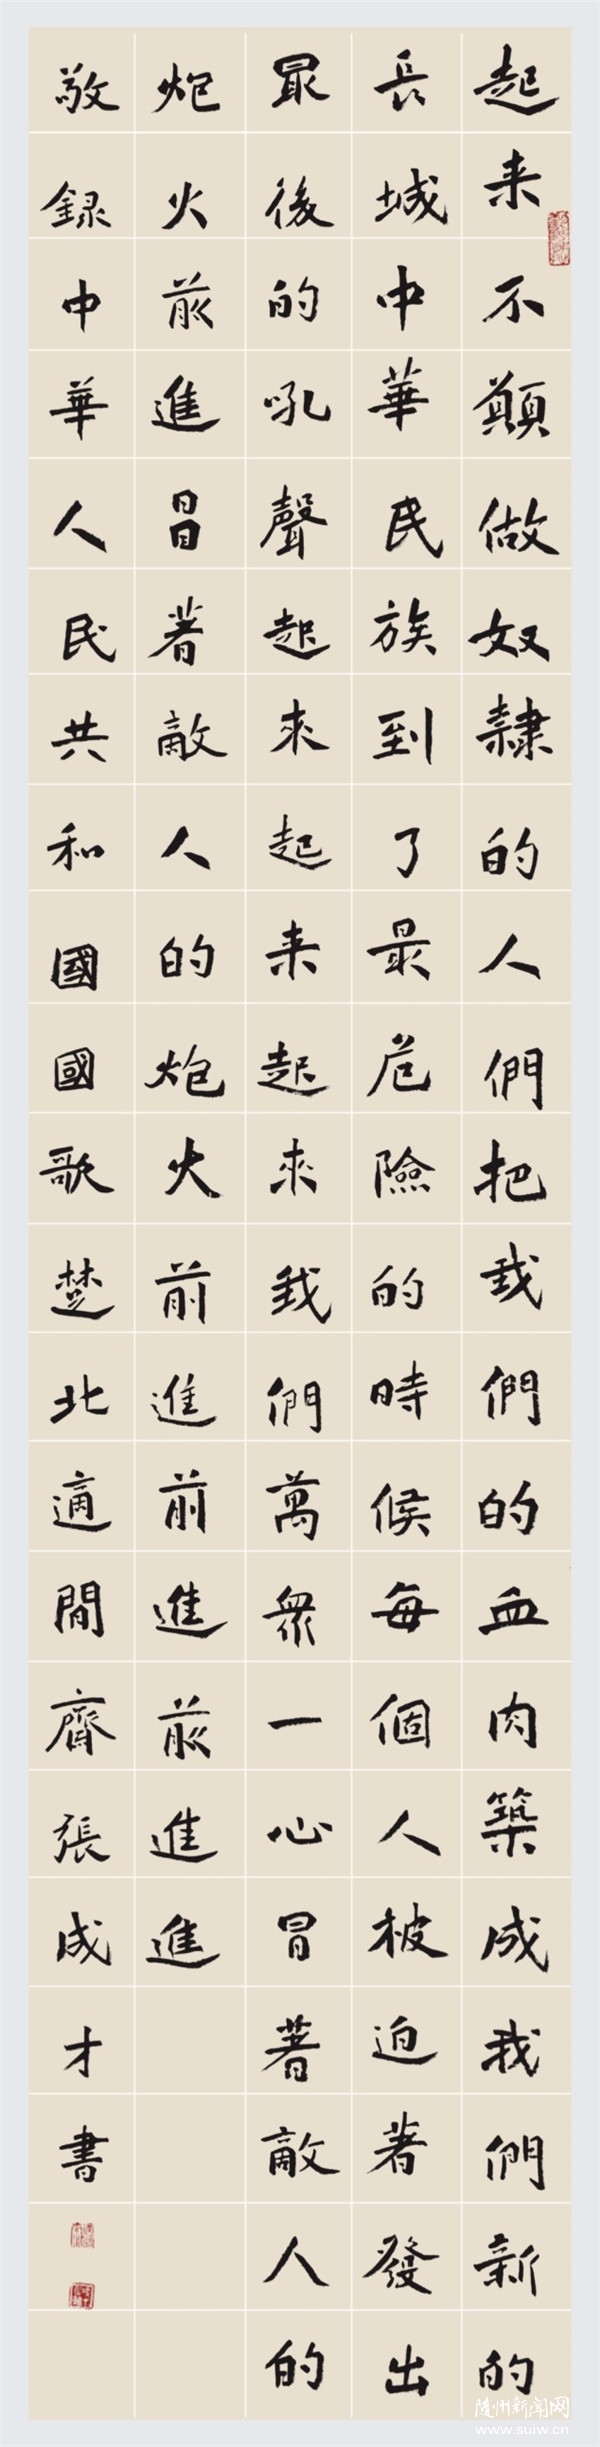 起来不願做奴隸的人們把我們的血肉築成我們新的
長城中華民族到了最危險的時候每個人被迫著發出
最後的吼聲起來起来起來我們萬衆一心冒著敵人的
炮火前進冒著敵人的炮火前進前進前進進
敬録中華人民共和國國歌楚北適閒齋張成才書
随州新闻网
www.suiw.cn